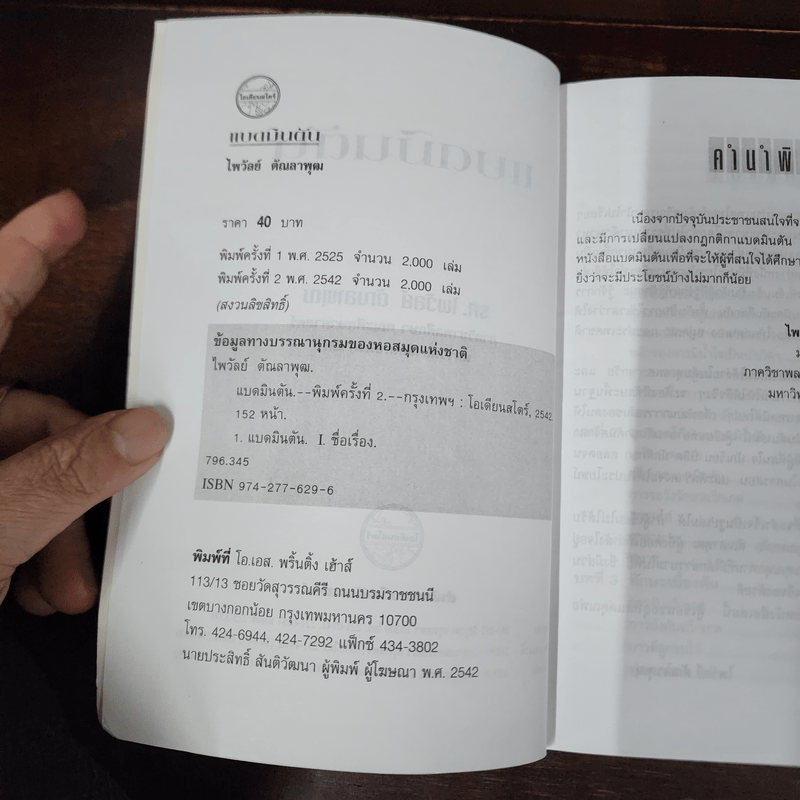 โอเดียนสโตร์
แบดมินตัน
ไพวัลย์ ตัณลาพุฒ
ราคา 40 บาท
พิมพ์ครั้งที่ 1 พ.ศ. 2525 จำนวน 2,000 เล่ม
พิมพ์ครั้งที่ 2 พ.ศ. 2542 จำนวน 2,000 เล่ม
(สงวนลิขสิทธิ์)
ข้อมูลทางบรรณานุกรมของหอสมุดแห่งชาติ
ไพวัลย์ ตัณลาพุฒ.
แบดมินตัน.--พิมพ์ครั้งที่ 2.--กรุงเทพฯ : โอเดียนสโตร์, 2542
152 หน้า.
1. แบดมินตัน. I. ชื่อเรื่อง.
796.345
ISBN 974-277-629-6
พิมพ์ที่ โอ.เอส. พริ้นติ้ง เฮ้าส์
113/13 ซอยวัดสุวรรณคีรี ถนนบรมราชชนนี
เขตบางกอกน้อย กรุงเทพมหานคร 10700
โทร. 424-6944, 424-7292 แฟ็กซ์ 434-3802
นายประสิทธิ์ สันติวัฒนา ผู้พิมพ์ ผู้โฆษณา พ.ศ. 2542
คำนำพิ
เนื่องจากปัจจุบันประชาชนสนใจที่จ
และมีการเปลี่ยนแปลงกฎกติกาแบดมินตัน
หนังสือแบดมินตันเพื่อที่จะให้ผู้ที่สนใจได้ศึกษา
ยิ่งว่าจะมีประโยชน์บ้างไม่มากก็น้อย
ไพ
ภาควิชาพล
มหาวิท